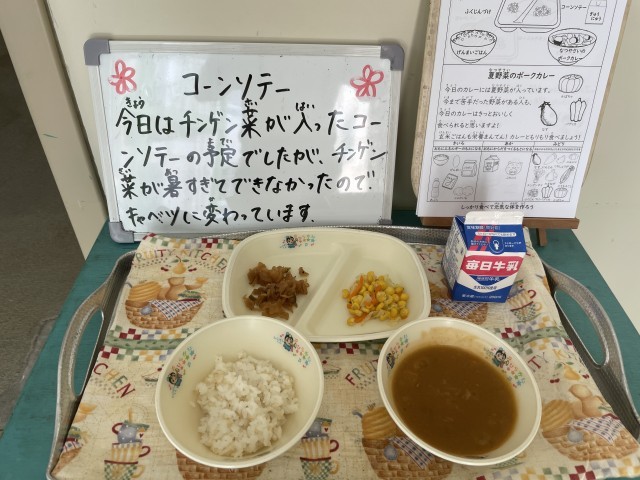 コーンソテー
今日はチンゲン菜が入ったコー
ンソテーの予定でしたが、チンゲン
菜が暑すぎてできなかったので
キャベツに変わっています。
ふくじんづけ
コーンソテー
ぎゅうにゅう
げんまいごはん
なつやさいの
ポークカレー
夏野菜のポークカレー
今日のカレーには夏野菜が入っています。
今まで苦手だった野菜がある人も、
今日のカレーはきっとおいしく
食べられると思いますよ!
玄米ごはんも栄養まんてん!カレーともりもり食べましょう!
きいろ
あか
みどり
しっかり食べて元気な体を作ろう
毎日牛乳
FRUITY KITCHEN